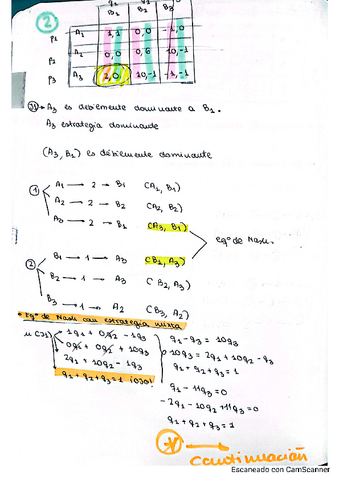 2
B1 B2 B3
P1 A1 1,1 0,0 -1,0
P2 A2 0,0 0,6 10,-1
P3 A3 2,0 10,-1 -1,-1
A3 es débilmente dominante a B1.
A3 estrategia dominante
(A3, B1) es débilmente dominante
1
A1 → 2 → B1 (A1, B1)
A2 → 2 → B2 (A2, B2)
A3 → 2 → B1 (A3, B1)
Eqº de Nash.
2
B1 → 1 → A3 (B1, A3)
B2 → 1 → A3 (B2, A3)
B3 → 1 → A2 (B3, A2)
Eqº de Nash con estrategia mixta
1q1 + 0q2 - 1q3
0q1 + 0q2 + 10q3
2q1 + 10q2 - 1q3
q1 + q2 + q3 = 1 ¡OJO!
q1 - q3 = 10q3
10q3 = 2q1 + 10q2 - q3
q1 + q2 + q3 = 1
q1 - 11q3 = 0
-2q1 - 10q2 + 11q3 = 0
q1 + q2 + q3 = 1
continuación
Escaneado con CamScanner